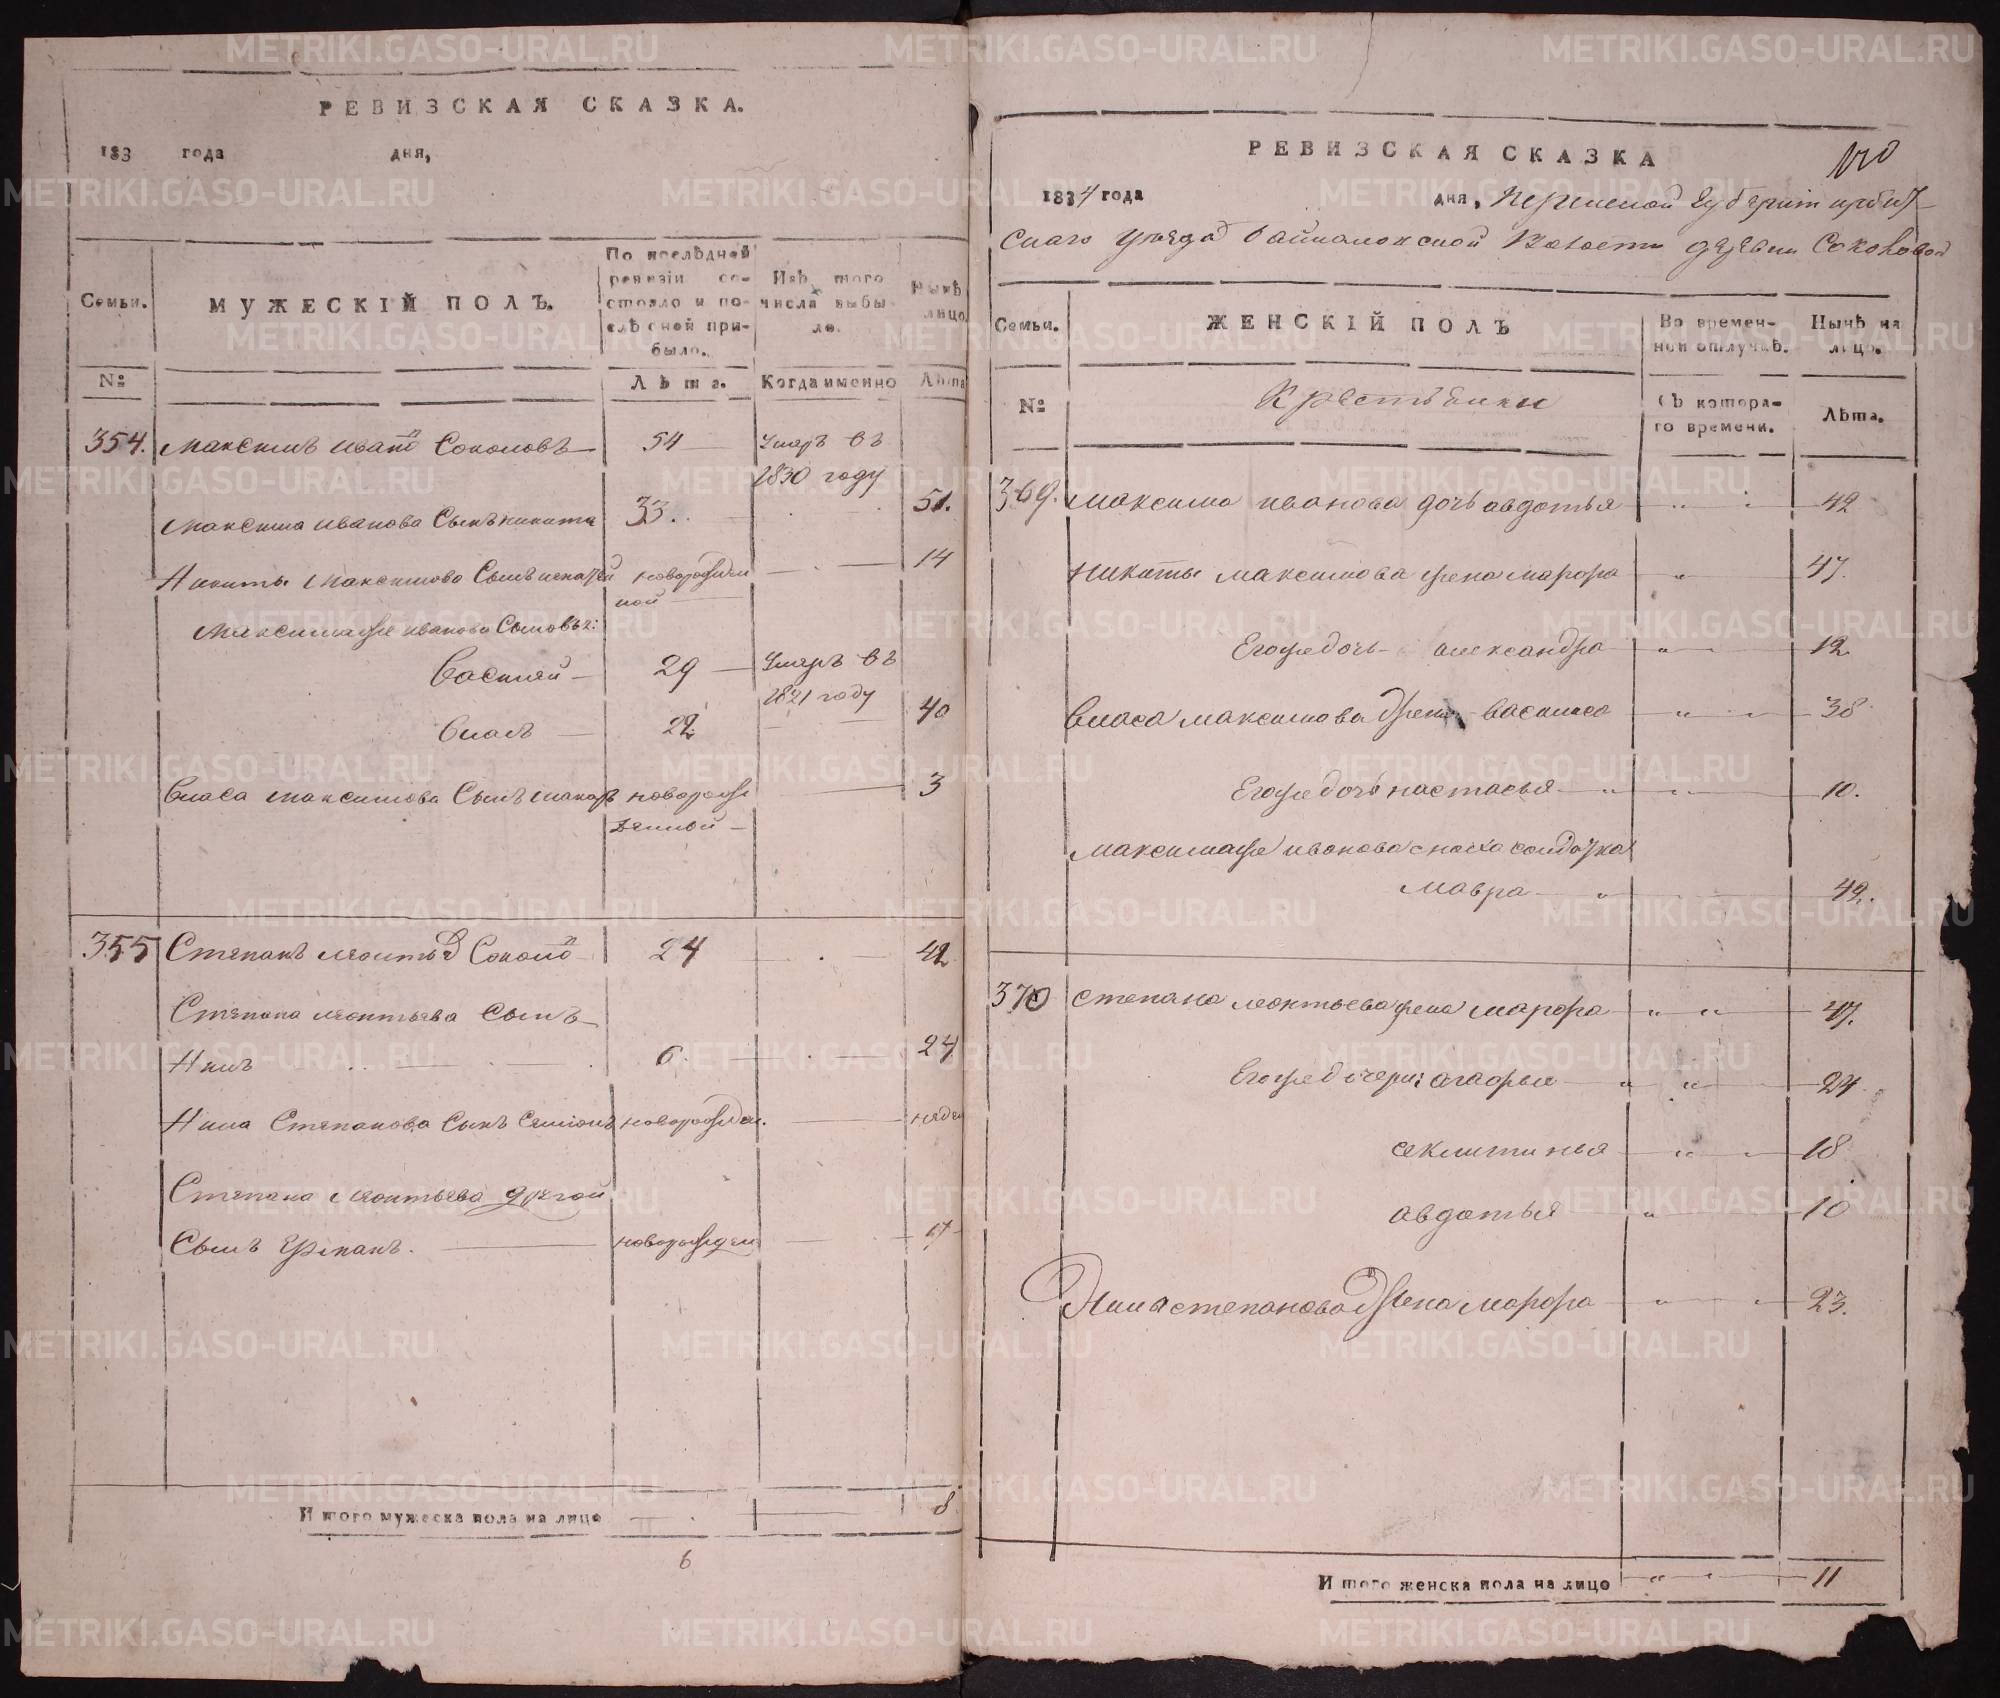 РЕВИЗСКАЯ СКАЗКА.
183 года дня,
Семьи. МУЖЕСКІЙ ПОЛЪ. По послѣдней ревизіи состояло и послѣ оной прибыло. Изъ того числа выбыло. Нынѣ лицо
№ Лѣта. Когда именно Лѣта
354. Максимъ Соколовъ 54 Умеръ въ
1830 году
Максима Иванова Сынъ Никита 33. 51.
Никиты Максимова Сынъ новорожден 14
ной
Максима же Иванова Сыновья:
Василей 29 Умеръ въ
1821 году
Власъ 22 40
Власа Максимова Сынъ Макаръ новорож 3
денной
355 Степанъ 24 42
Степана Леонтьева Сынъ
Нилъ 6 24
Нила Степанова Сынъ Семіонъ новорожден. недел
Степана Леонтьева другой
Сынъ новорожден
Итого мужеска пола на лицо 8
6
РЕВИЗСКАЯ СКАЗКА
1834 года дня, Пермской Губерніи Ирбит
скаго уезда волости деревни Соколовой
Семьи. ЖЕНСКІЙ ПОЛЪ Во временной отлучкѣ. Нынѣ на лицо.
№ Крестьянки Съ котораго времени. Лѣта.
369. Максима Иванова дочь авдотья 42
Никиты Максимова жена марфа 47.
Егоже дочь александра 12
Власа Максимова жена василиса 38
Егоже дочь настасья 10.
Максима же иванова сноха солдатка
мавра 42.
370 Степана Леонтьева жена марфа 47.
Егоже дочери: агафья 24
секлитинья 18
авдотья 10
Нила степанова жена марфа 23.
Итого женска пола на лицо 11
METRIKI.GASO-URAL.RU